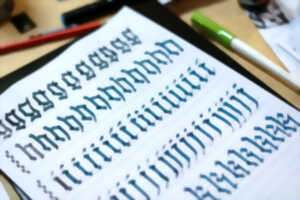 ggggggggg
hhhhhhhhhh
iiiiiiiiiiiiiii
jjjjjjjjjjjjj
kkkkkkkk